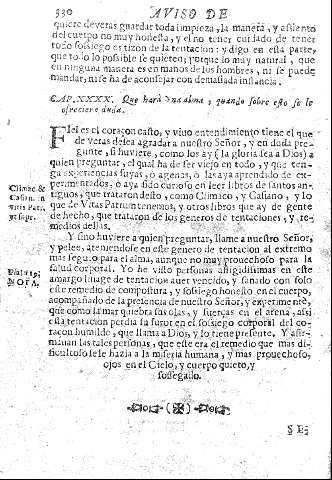 330 AVISO DE
quiere deveras guardar toda limpieza, la manera, y assiento
del cuerpo no muy honesta, y el no tener cuidado de tener
todo sossiego es tizon de la tentacion: y digo en esta parte,
que todo lo possible se quieten; porque lo muy natural, que
en ninguna manera es en manos de los hombres, ni se puede
mandar, ni se ha de aconsejar con demasiada instancia.
CAP. XXXX. Que hará vna alma, quando sobre esso se le
ofreciere duda.
FIel es el coraçon casto, y vivo entendimiento tiene el que
de veras desea agradar a nuestro Señor, y en duda pre-
gunte, si huviere, como los ay (la gloria sea a Dios) a
quien preguntar, el qual ha de ser viejo en todo, y que ten-
ga experiencias suyas, ò agenas, ò las aya aprendido de ex-
perimentados, ò aya sido curioso en leer libros de santos an-
Climac. &
tiguos, que trataron desto, como Climico, y Casiano, y lo
Casian. in
que de Vitas Patrum tenemos, y otros libros que ay de gente
vitis Patr.
de hecho, que trataron de los generos de tentaciones, y re-
medios dellas.
Y sino huviere a quien preguntar, llame a nuestro Señor,
y pelee, ateniendose en este genero de tentacion al extremo
mas seguro para el alma, aunque no muy provechoso para la
salud corporal. Yo he visto personas afligidissimas en este
amargo linage de tentacion aver vencido, y sanado con solo
NOTA.
este remedio de compostura, y sossiego honesto en el cuerpo,
acompañado de la presencia de nuestro Señor, y experimentè,
que como la mar quiebra sus olas, y fuerças en el arena, assi
esta tentacion perdia su furor en el sossiego corporal del co-
raçon humilde, que llama a Dios, y lo tiene presente. Y afir-
mavan las tales personas, que este era el remedio que mas di-
ficultoso se le hazia a la miseria humana, y mas provechoso,
ojos en el Cielo, y cuerpo quieto, y
sossegado.